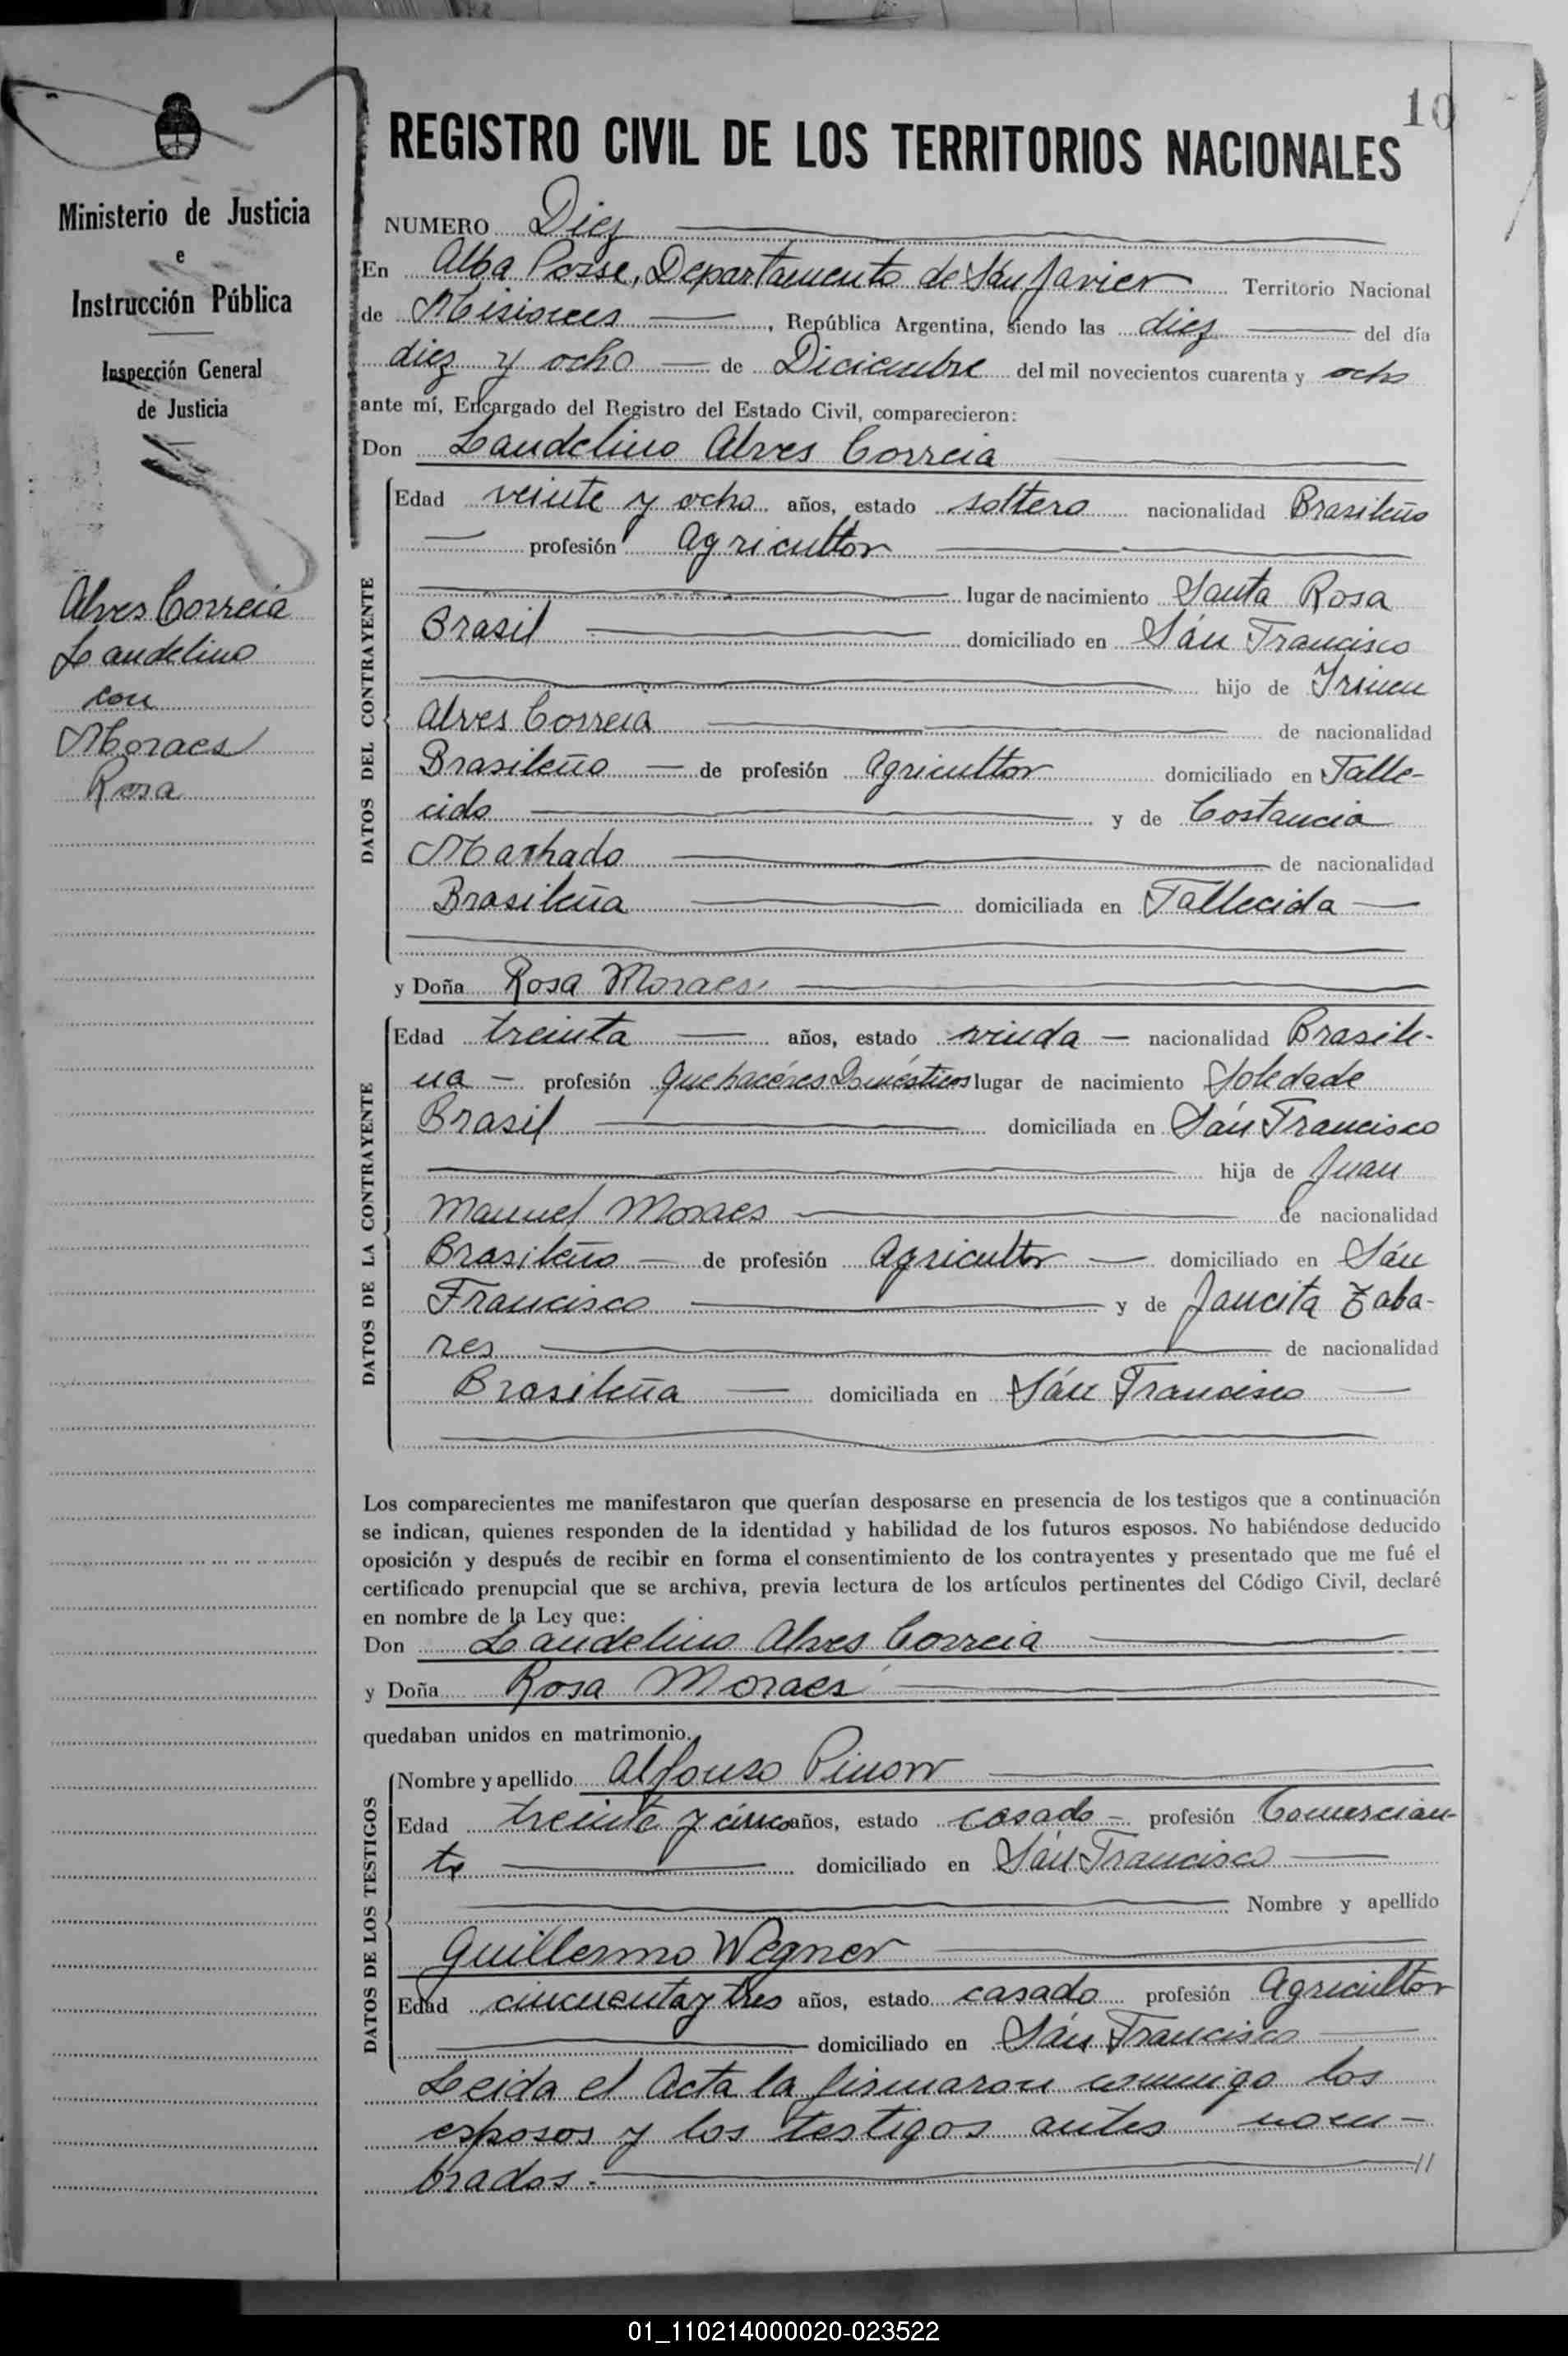 10
Ministerio de Justicia
e
Instrucción Pública
Inspección General
de Justicia
Alves Correia
Laudelino
con
Moraes
Rosa
REGISTRO CIVIL DE LOS TERRITORIOS NACIONALES
NUMERO Diez
En Alba Posse, Departamento de Sán Javier Territorio Nacional
de Misiones, República Argentina, siendo las diez del día
diez y ocho de Diciembre del mil novecientos cuarenta y ocho
ante mí, Encargado del Registro del Estado Civil, comparecieron:
Don Laudelino Alves Correia
DATOS DEL CONTRAYENTE
Edad veinte y ocho años, estado soltero nacionalidad Brasileño
profesión Agricultor
lugar de nacimiento Santa Rosa
Brasil domiciliado en Sán Francisco
hijo de Irineu
Alves Correia de nacionalidad
Brasileño de profesión Agricultor domiciliado en Falle-
cido y de Costancia
Machado de nacionalidad
Brasileña domiciliada en Fallecida
y Doña Rosa Moraes
DATOS DE LA CONTRAYENTE
Edad treinta años, estado viuda nacionalidad Brasile-
ña profesión Quehacéres Doméstícos lugar de nacimiento Soledade
Brasil domiciliada en Sán Francisco
hija de Juan
Manuel Moraes de nacionalidad
Brasileño de profesión Agricultor domiciliado en Sán
Francisco y de Jancita Taba-
res de nacionalidad
Brasileña domiciliada en Sán Francisco
Los comparecientes me manifestaron que querían desposarse en presencia de los testigos que a continuación
se indican, quienes responden de la identidad y habilidad de los futuros esposos. No habiéndose deducido
oposición y después de recibir en forma el consentimiento de los contrayentes y presentado que me fué el
certificado prenupcial que se archiva, previa lectura de los artículos pertinentes del Código Civil, declaré
en nombre de la Ley que:
Don Laudelino Alves Correia
y Doña Rosa Moraes
quedaban unidos en matrimonio.
DATOS DE LOS TESTIGOS
Nombre y apellido Alfonso Pinow
Edad treinta y cinco años, estado casado profesión Comercian-
te domiciliado en Sán Francisco
Nombre y apellido
Guillermo Wegner
Edad cincuenta y tres años, estado casado profesión Agricultor
domiciliado en Sán Francisco
Leida el Acta la firmaron conmigo los
esposos y los testigos antes nom-
brados.
01_110214000020-023522